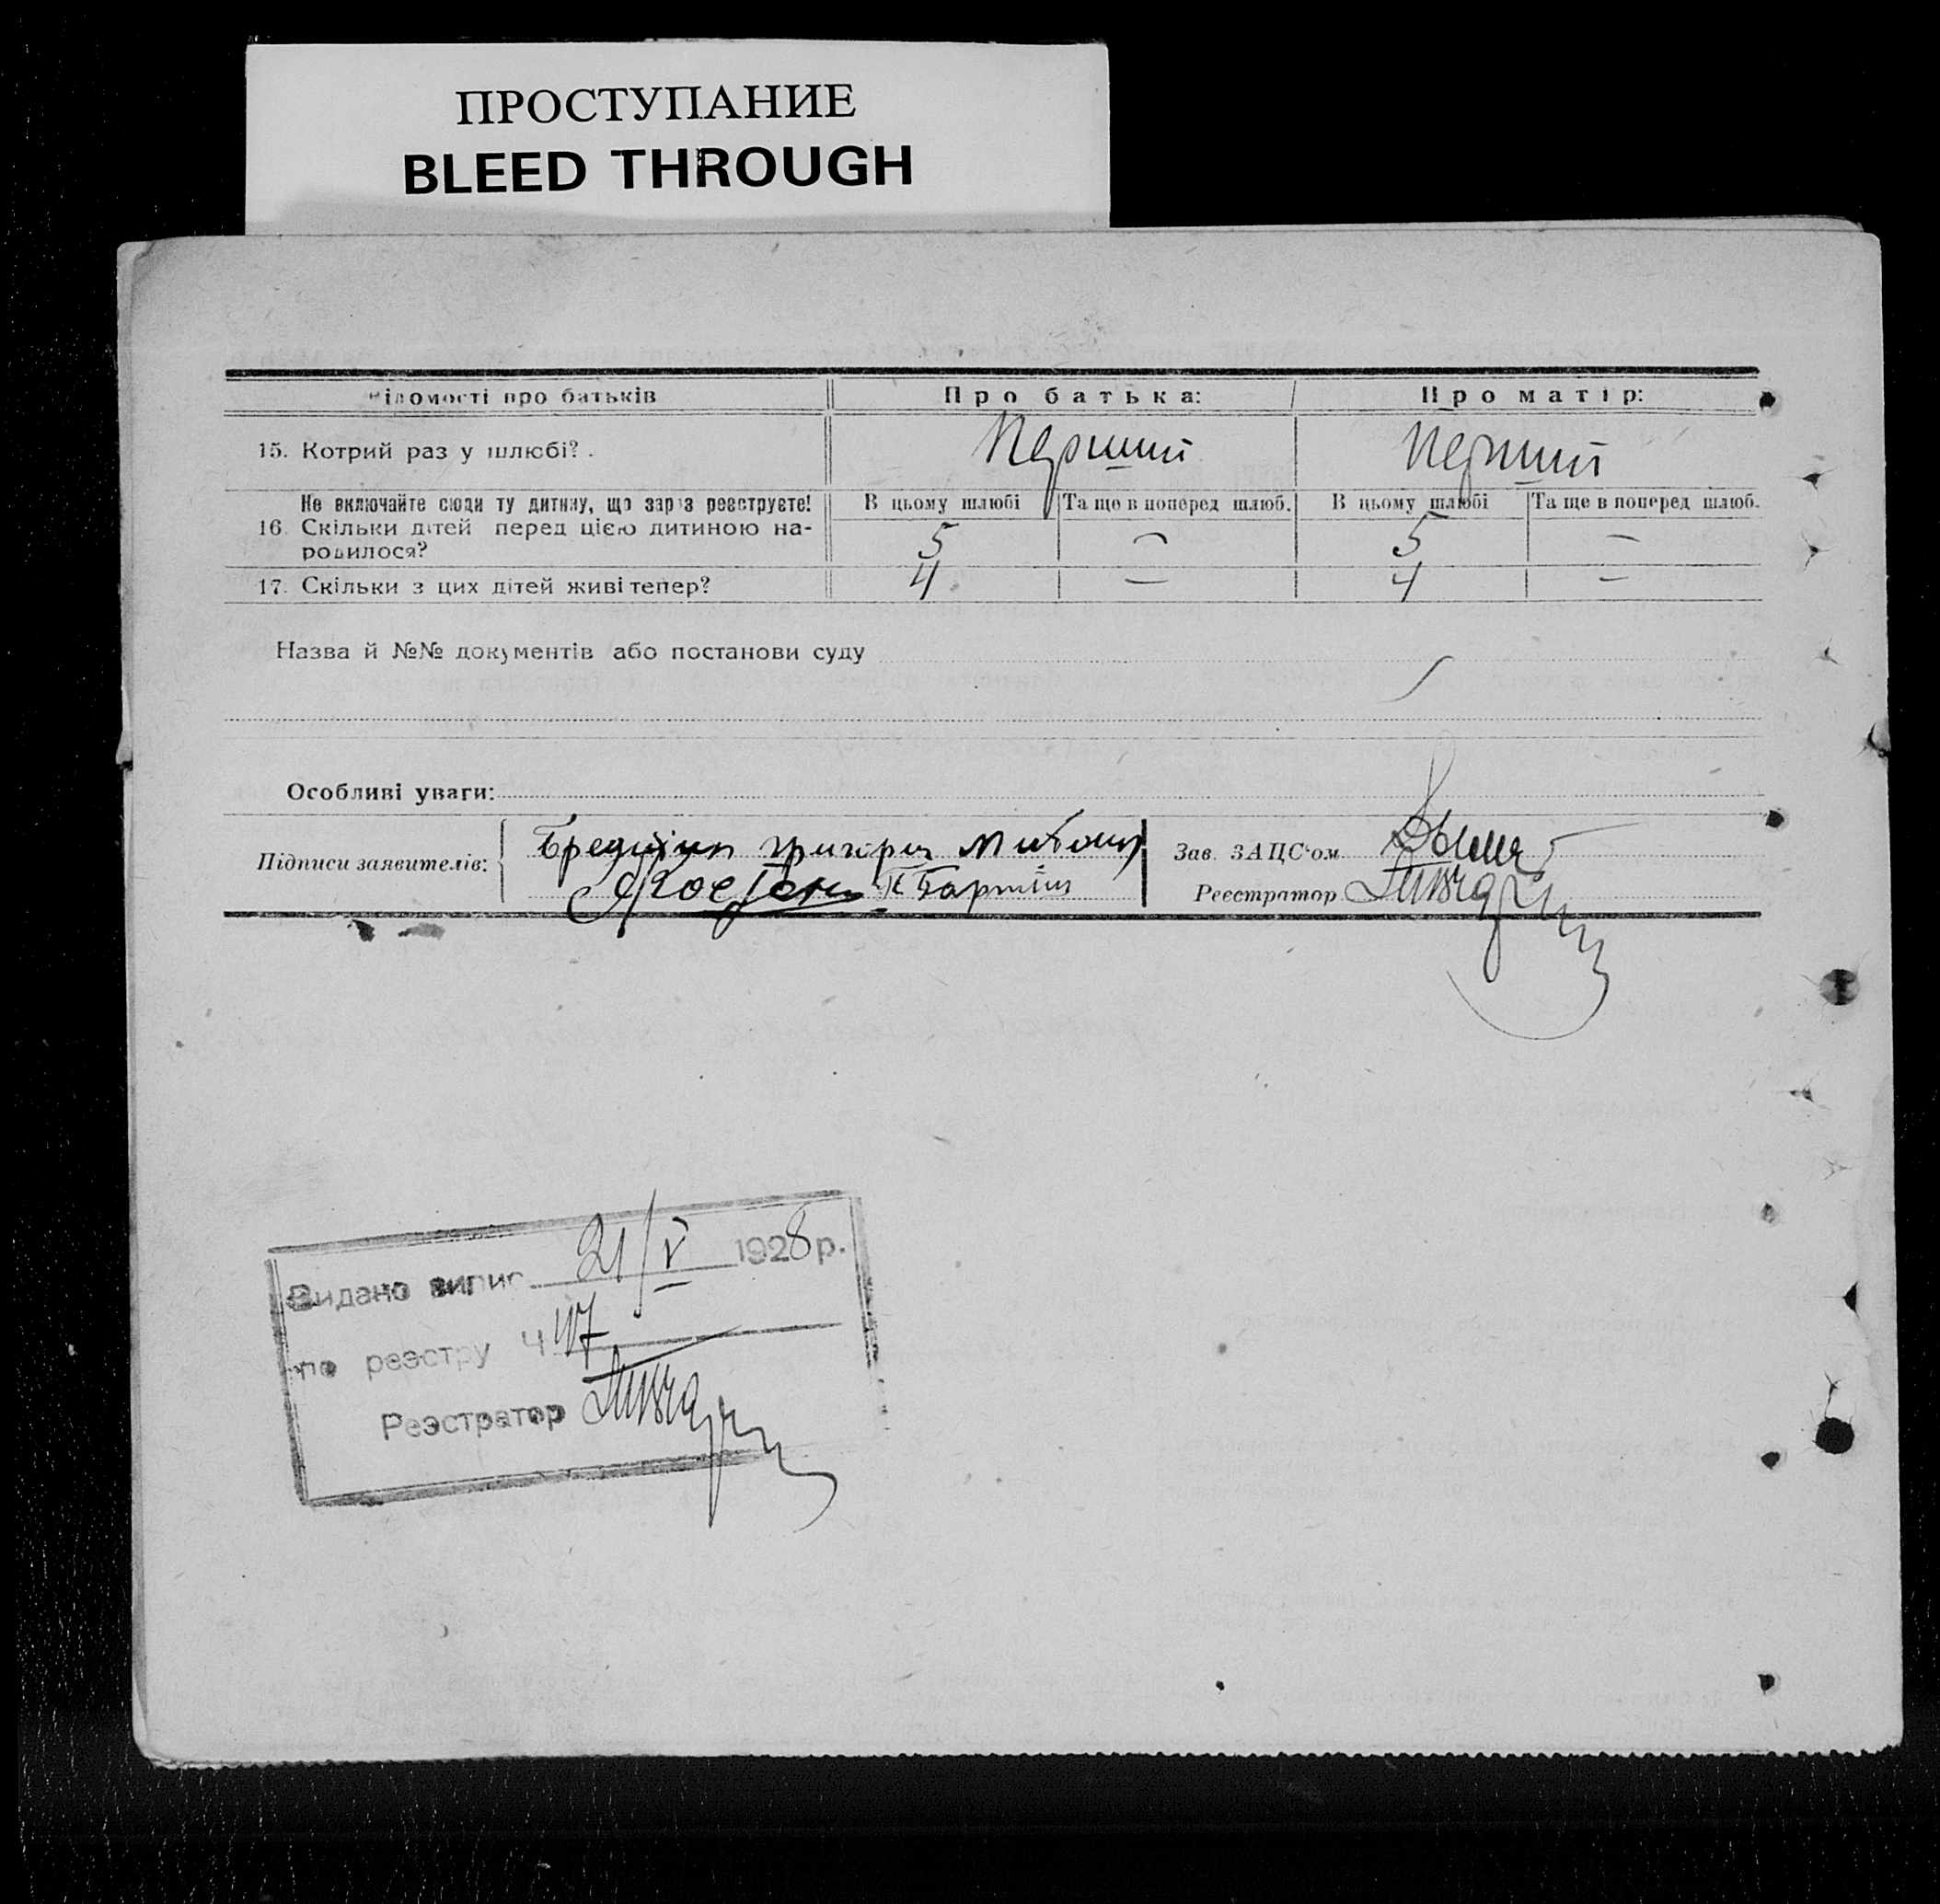 ПРОСТУПАНИЕ
BLEED THROUGH
Відомості про батьків Про батька: Про матір:
15. Котрий раз у шлюбі? Перший Перший
Не включайте сюди ту дитину, що зараз реєструєте! В цьому шлюбі Та ще в поперед шлюб. В цьому шлюбі Та ще в поперед шлюб.
16. Скільки дітей перед цією дитиною на- 5 — 5 —
родилося?
17. Скільки з цих дітей живі тепер? 4 — 4 —
Назва й №№ документів або постанови суду
Особливі уваги:
Підписи заявителів: Зав. ЗАЦС'ом
Реєстратор
Видано випис 21/V 1928 р.
по реэстру Ч
Реэстратор